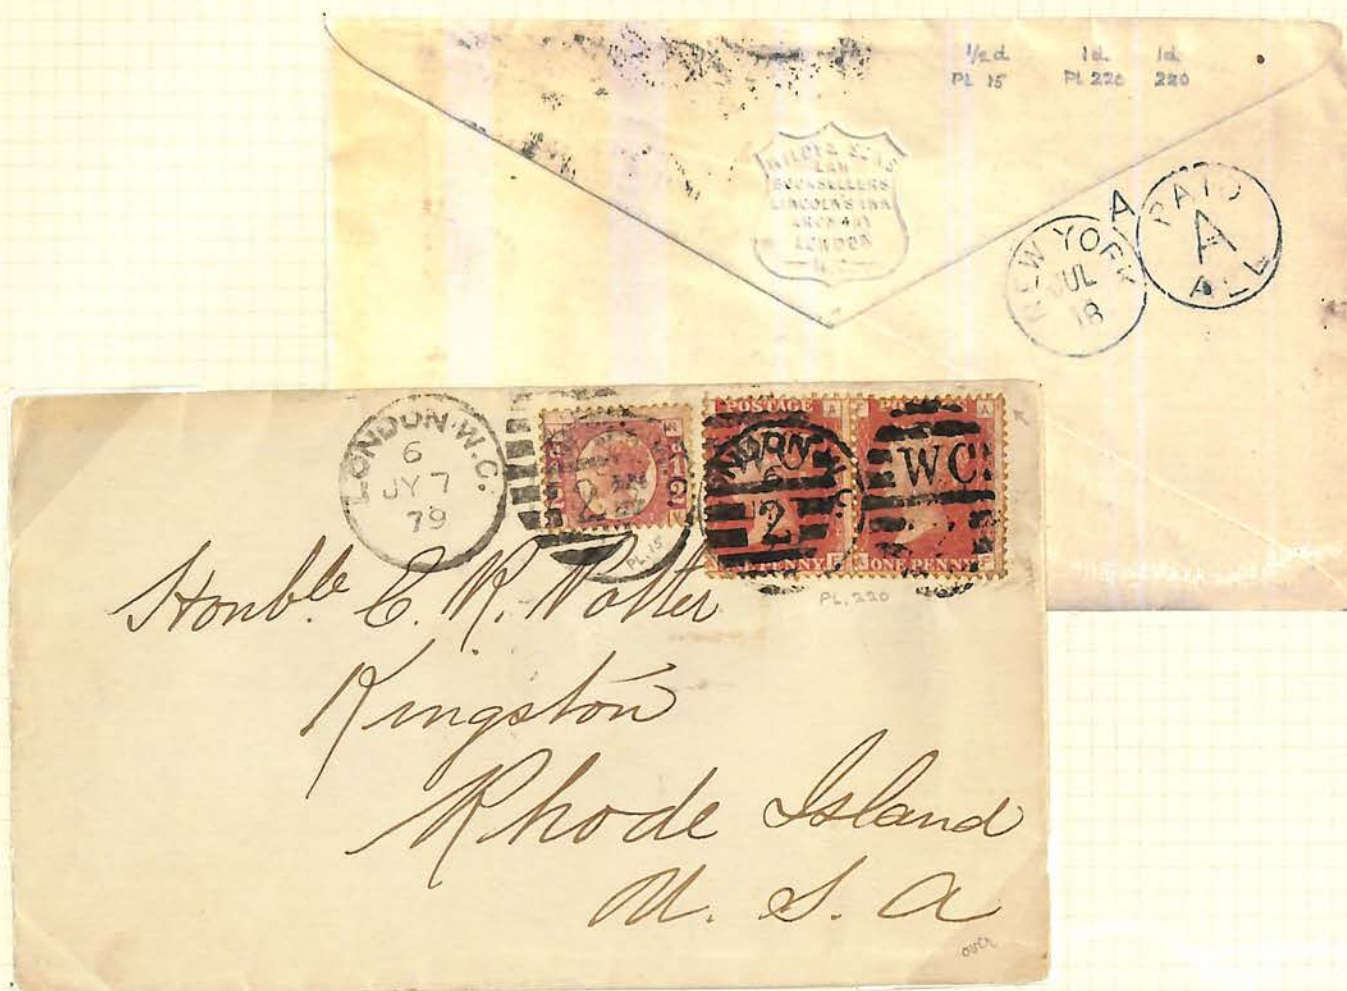 ½d. 1d. 1d.
PL 15 PL 220 220
WILDY & SONS
LAW
BOOKSELLERS
LINCOLN'S INN
ARCHWAY
LONDON
NEW YORK
JUL
18
A
PAID
A
ALL
LONDON.W.C.
6
JY 7
79
2
PL. 15
POSTAGE A
W.C.
6
2
WC
A
ONE PENNY
ONE PENNY
PL. 220
Honble. E. R. Potter
Kingston
Rhode Island
U. S. A
over